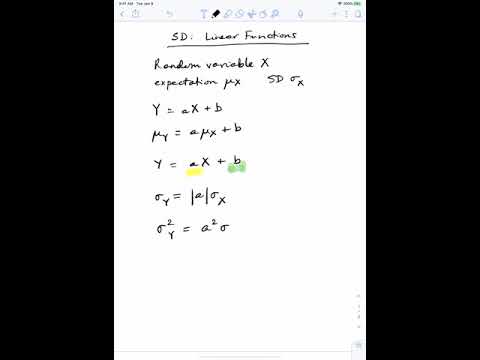 9:41 AM Tue Jan 9
SD: Linear Functions
Random variable X
expectation μx SD σx
Y = aX + b
μY = aμX + b
Y = aX + b
σY = |a|σX
σ²Y = a²σ